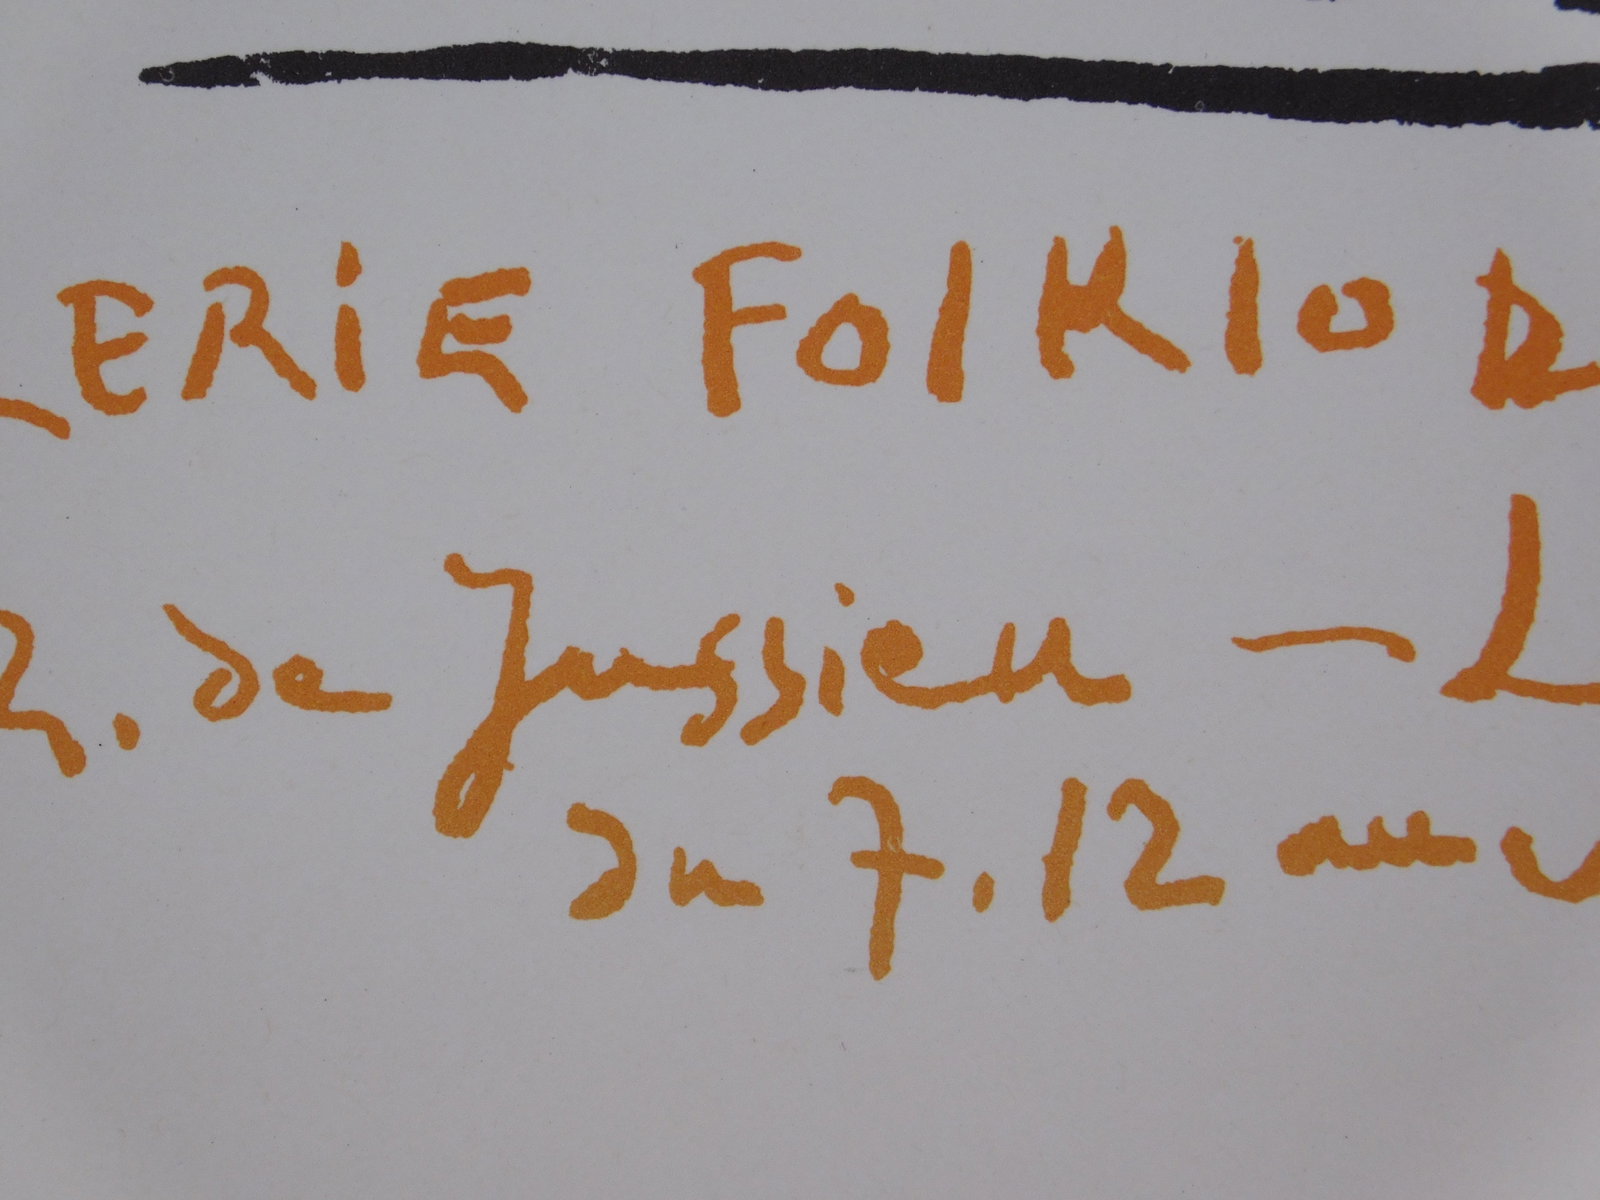 LERIE FOLKLOR
R. de Jussieu — L
du 7.12 au